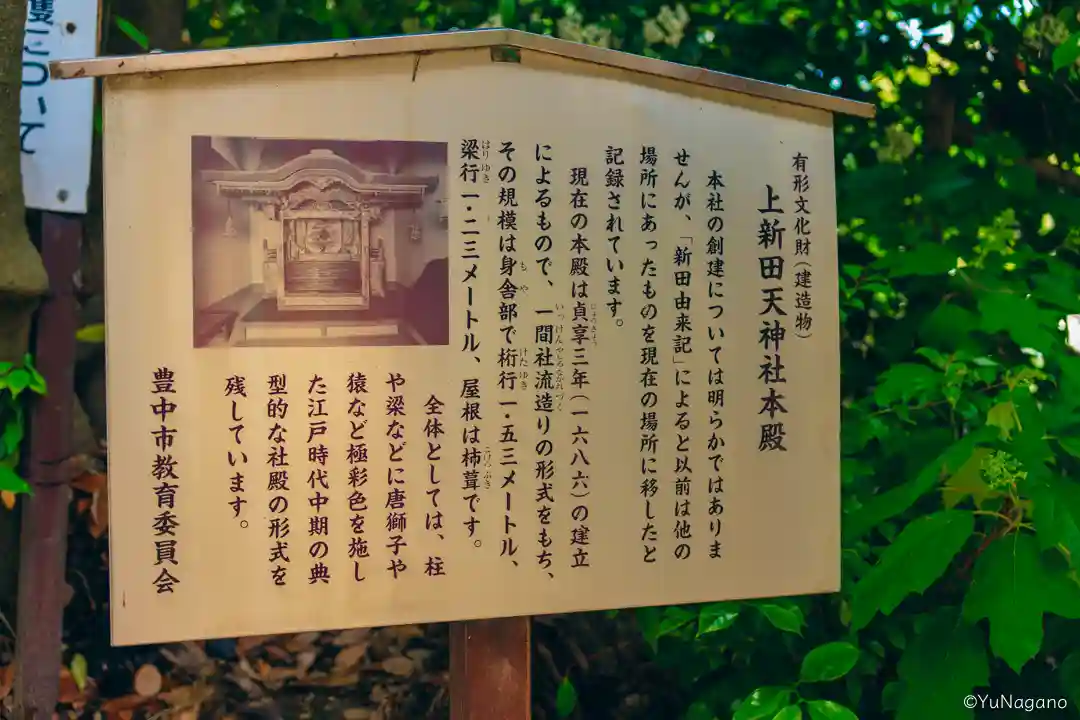 有形文化財（建造物）
上新田天神社本殿
本社の創建については明らかではありま
せんが、「新田由来記」によると以前は他の
場所にあったものを現在の場所に移したと
記録されています。
現在の本殿は貞享三年（一六八六）の建立
によるもので、一間社流造りの形式をもち、
その規模は身舎部で桁行一・五三メートル、
梁行一・二三メートル、屋根は杮葺です。
全体としては、柱
や梁などに唐獅子や
猿など極彩色を施し
た江戸時代中期の典
型的な社殿の形式を
残しています。
豊中市教育委員会
について
©YuNagano